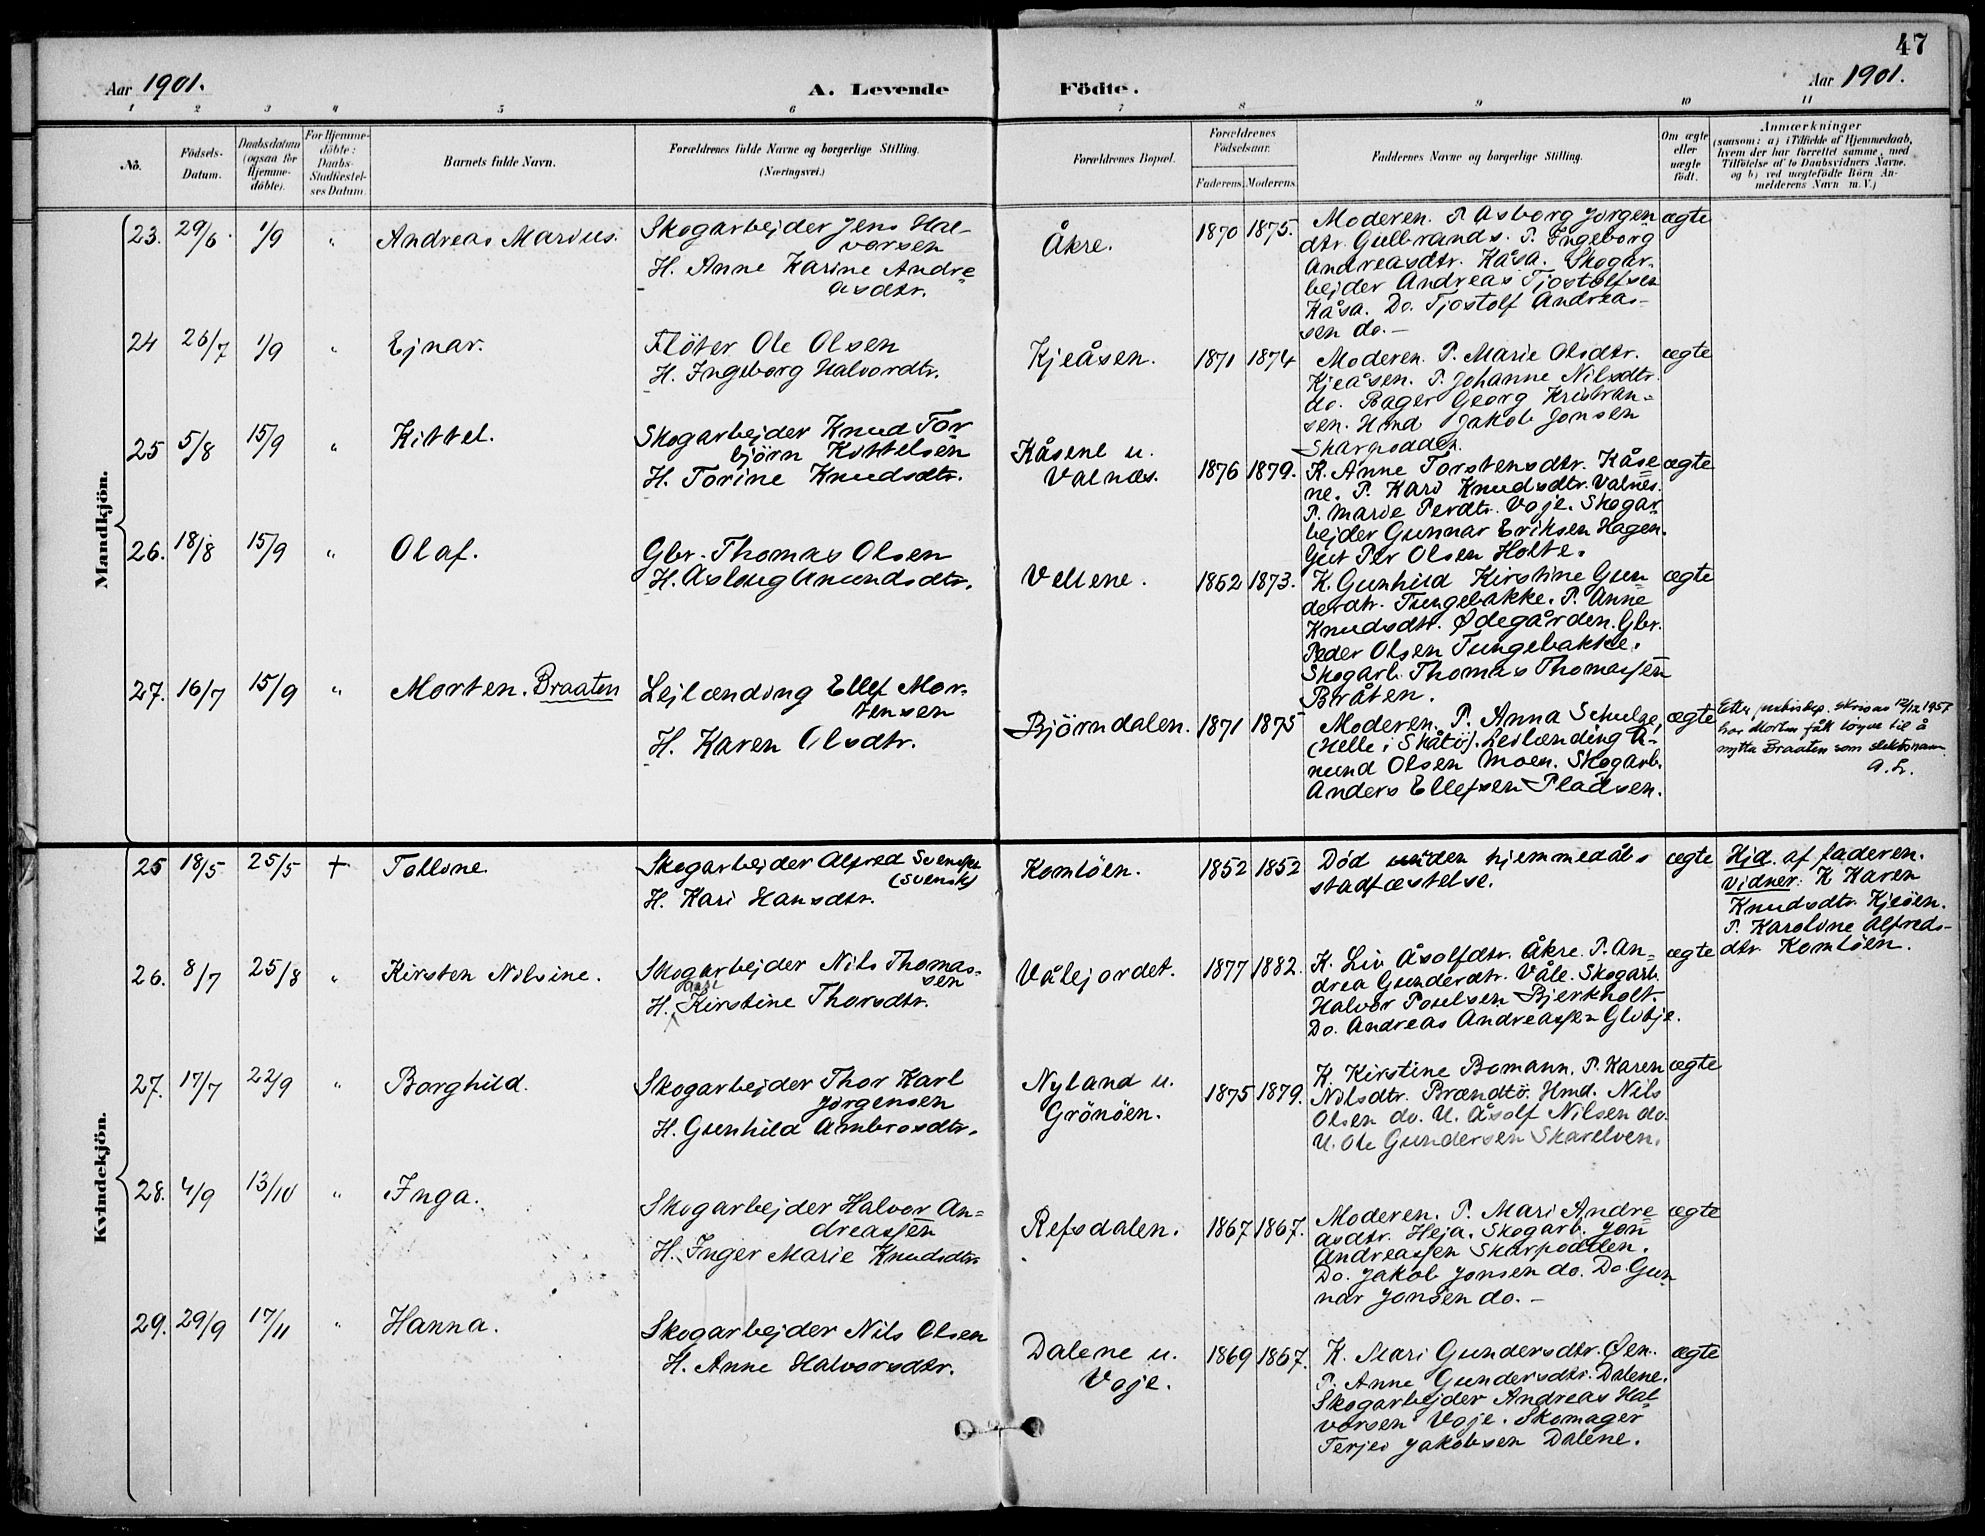 47
Aar 1901.
A. Levende
Födte.
Aar 1901.
1 2 3 4 5 6 7 8 9 10 11
No.
Födsels-
Datum.
Daabsdatum
(ogsaa for
Hjemme-
döbte).
For Hjemme-
döbte:
Daabs-
Stadfæstel-
ses Datum.
Barnets fulde Navn.
Forældrenes fulde Navne og borgerlige Stilling.
(Næringsvei.)
Forældrenes Bopæl.
Forældrenes
Födselsaar.
Faderens. Moderens.
Faddernes Navne og borgerlige Stilling.
Om ægte
eller
uægte
födt.
Anmærkninger
(saasom: a) i Tilfælde af Hjemmedaab,
hvem der har forrettet samme, med
Tilföielse af to Daabsvidners Navne.
og b) ved uægtefödte Börn An-
melderens Navn m. V.)
Mandkjön.
23. 29/6. 1/9 " Andreas Marius.
Skogarbejder Jens Hal-
vorsen
H. Anne Karine Andre
asdtr.
Åkre.
1870 1875.
Moderen. P. Asborg Jørgen
dtr. Gulbrands. P. Ingeborg
Andreasdtr. Kåsa. Skogar-
bejder Andreas Tjostolfsen
Kåsa. Do. Tjostolf Andreas-
sen do. –
ægte
24 26/7 1/9 " Ejnar.
Fløter Ole Olsen
H. Ingeborg Halvordtr.
Kjeåsen.
1871 1874
Moderen. P. Marie Olsdtr.
Kjeåsen. P. Johanne Nilsdtr.
do. Bager Georg Kristian-
sen. Hmd Jakob Jonsen
Skarpodden.
ægte
25 5/8 15/9 " Kittel.
Skogarbejder Knud Tor
bjørn Kittelsen
H. Torine Knudsdtr.
Kåsene u.
Valnæs.
1876 1879.
K. Anne Torstensdtr. Kåse
ne. P. Kari Knudsdtr. Valnes.
P. Marie Perdtr. Voje. Skogar
bejder Gunnar Eriksen Hagen.
Gut Per Olsen Holte.
ægte
26. 18/8 15/9 " Olaf.
Gbr. Thomas Olsen
H. Aslaug Amundsdtr.
Vellene.
1852 1873.
K. Gunhild Kirstine Gun
derdtr. Tungebakke. P. Anne
Knudsdtr. Ødegården. Gbr.
Peder Olsen Tungebakke.
Skogarb. Thomas Thomassen
Bråten.
ægte
27. 16/7 15/9 " Morten. Braaten
Lejlænding Ellef Mor-
tensen
H. Karen Olsdtr.
Bjørndalen.
1871 1875
Moderen. P. Anna Schulze,
(Helle i Skåtø). Leilænding A-
mund Olsen Moen. Skogarb.
Anders Ellefsen Pladsen.
ægte
Etter skrives 1957
har Morten fått løyve til å
nytta Braaten som slektsnamn
A. L.
Kvindekjön.
25 18/5 25/5 + Tolline.
Skogarbejder Alfred Svenske
(Svensk)
H. Kari Hansdtr.
Komtöen.
1852 1852
Död uniden hjemmedåbs
stadfæstelse.
ægte
Hjd. af faderen.
Vidner: K Karen
Knudsdtr. Kjeöen.
P. Karoline Alfreds-
dtr. Komtöen.
26. 8/7 25/8 " Kirsten Nilsine.
Skogarbejder Nils Thomas-
sen
H. Kirstine Thorsdtr.
Vålejordet.
1877 1882.
K. Liv Åsolfdtr. Åkre. P. An-
drea Gunderdtr. Våle. Skogarb.
Halvor Poulsen Bjerkholt.
Do. Andreas Andreassen Glitje.
ægte
27. 17/7 22/9 " Borghild.
Skogarbejder Thor Karl
Jørgensen
H. Gunhild Ambrosdtr.
Nyland u.
Grönöen.
1875 1879.
K. Kirstine Bomann. P. Karen
Nilsdtr. Brændtö. Hmd. Nils
Olsen do. U. Åsolf Nilsen do.
U. Ole Gundersen Skarelven.
ægte
28. 4/9 13/10 " Inga.
Skogarbejder Halvor An-
dreassen
H. Inger Marie Knudsdtr.
Refsdalen.
1867 1867.
Moderen. P. Mari Andre
asdtr. Heja. Skogarb. Jon
Andreassen Skarpodden.
Do. Jakob Jonsen do. Do. Gun
nar Jonsen do. –
ægte
29. 29/9 17/11 " Hanna.
Skogarbejder Nils Olsen
H. Anne Halvorsdtr.
Dalene u.
Voje.
1869 1867.
K. Mari Gundersdtr. Øen.
P. Anne Gundersdtr. Dalene.
Skogarbejder Andreas Hal
vorsen Voje. Skomager
Terjei Jakobsen Dalene.
ægte